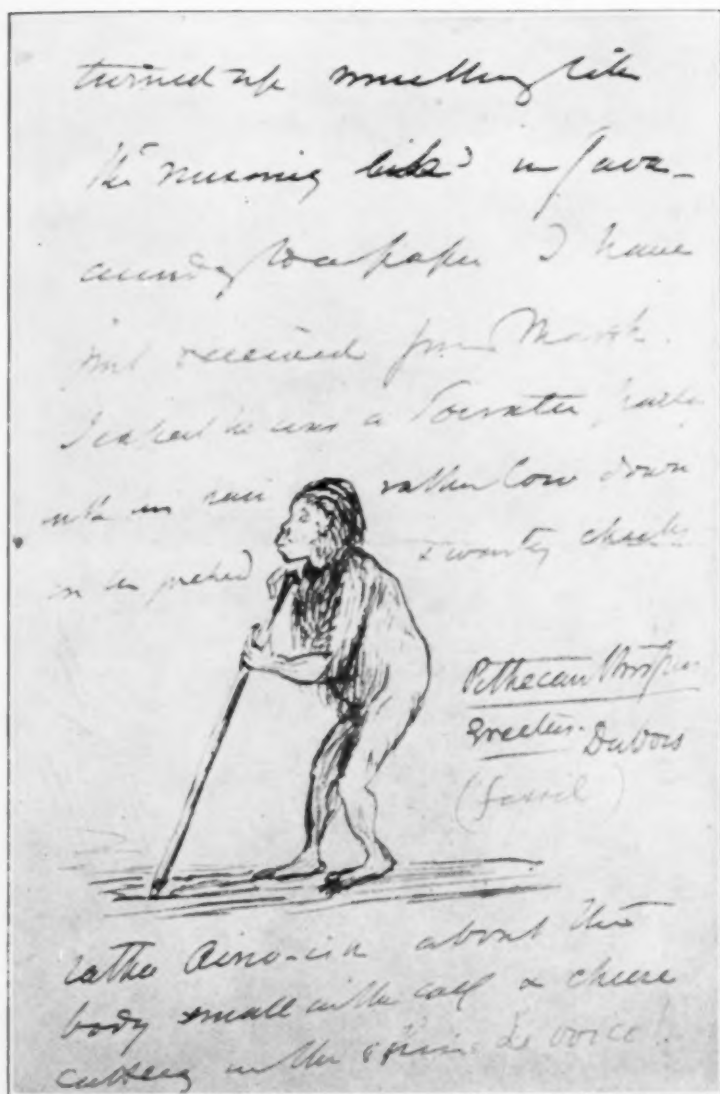 turned up something like
the "missing link" in Java -
according to a paper I have
just received from Marsh.
I expect he was a Socratic party
with his hair rather low down
on his forehead & warty cheeks
Pithecanthropus
Erectus. Dubois
(fossil)
rather Aino-ish about the
body small in the calf & cheese
cutting in the shins. Le voici!